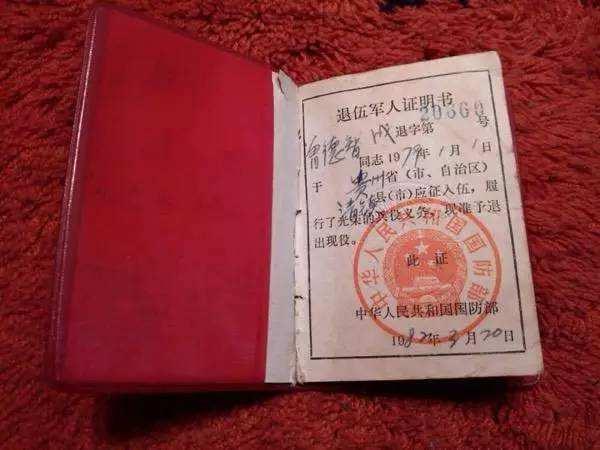 退伍军人证明书
成退字第20360号
德智同志1979年1月1日
于贵州省(市、自治区)
清镇县(市)应征入伍,履
行了光荣的兵役义务,现准予退
出现役。
此证
中华人民共和国国防部
中华人民共和国国防部
1982年3月20日